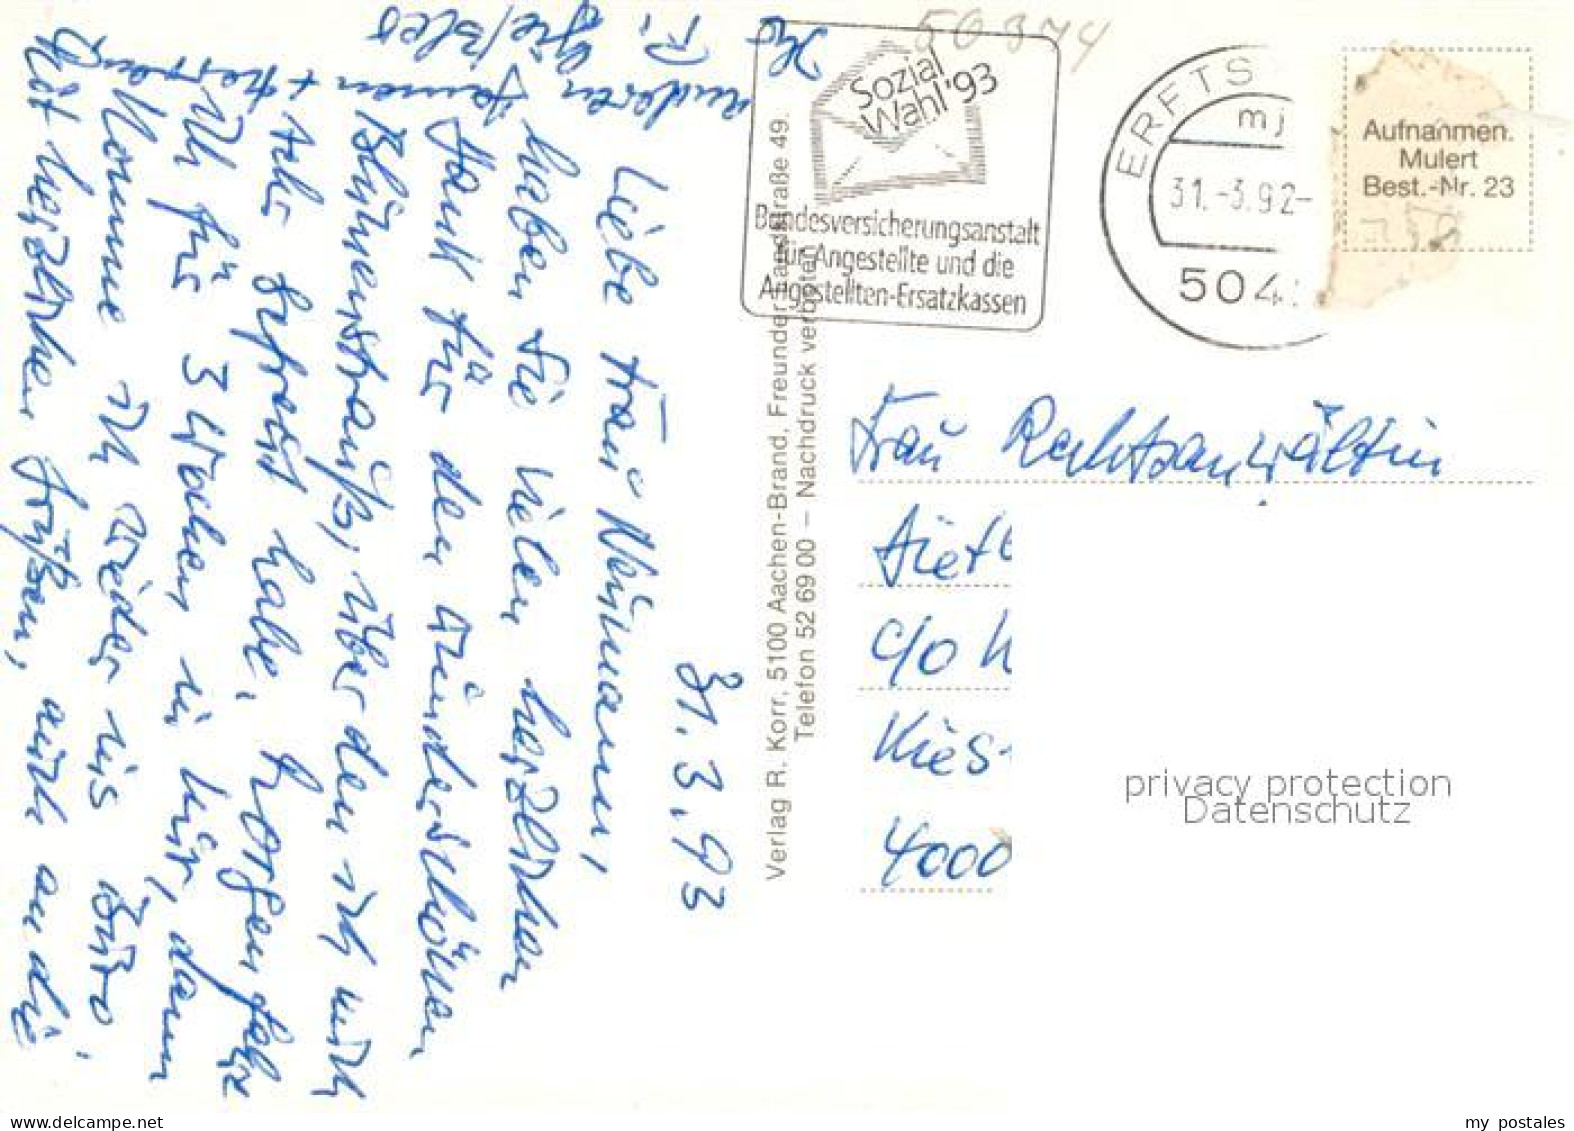 31.3.93
Liebe Frau Neumann,
haben Sie vielen herzlichen
Dank für den wunderschönen
Blumenstrauß, über den ich mich
sehr gefreut habe. Morgen fahre
ich für 3 Wochen in Kur, dann
komme ich wieder ins Büro.
Mit herzlichen Grüßen, auch an die
anderen Damen + Herren
Ihr
50374
Sozial
Wahl '93
Bundesversicherungsanstalt
für Angestellte und die
Angestellten-Ersatzkassen
ERFTS
mj
31.-3.92-
504
Aufnahmen.
Mulert
Best.-Nr. 23
Verlag R. Korr, 5100 Aachen-Brand, Freunder Landstraße 49.
Telefon 52 69 00 – Nachdruck verboten
Frau Rechtsanwältin
c/o
Kies
4000
privacy protection
Datenschutz
www.delcampe.net
my_postales